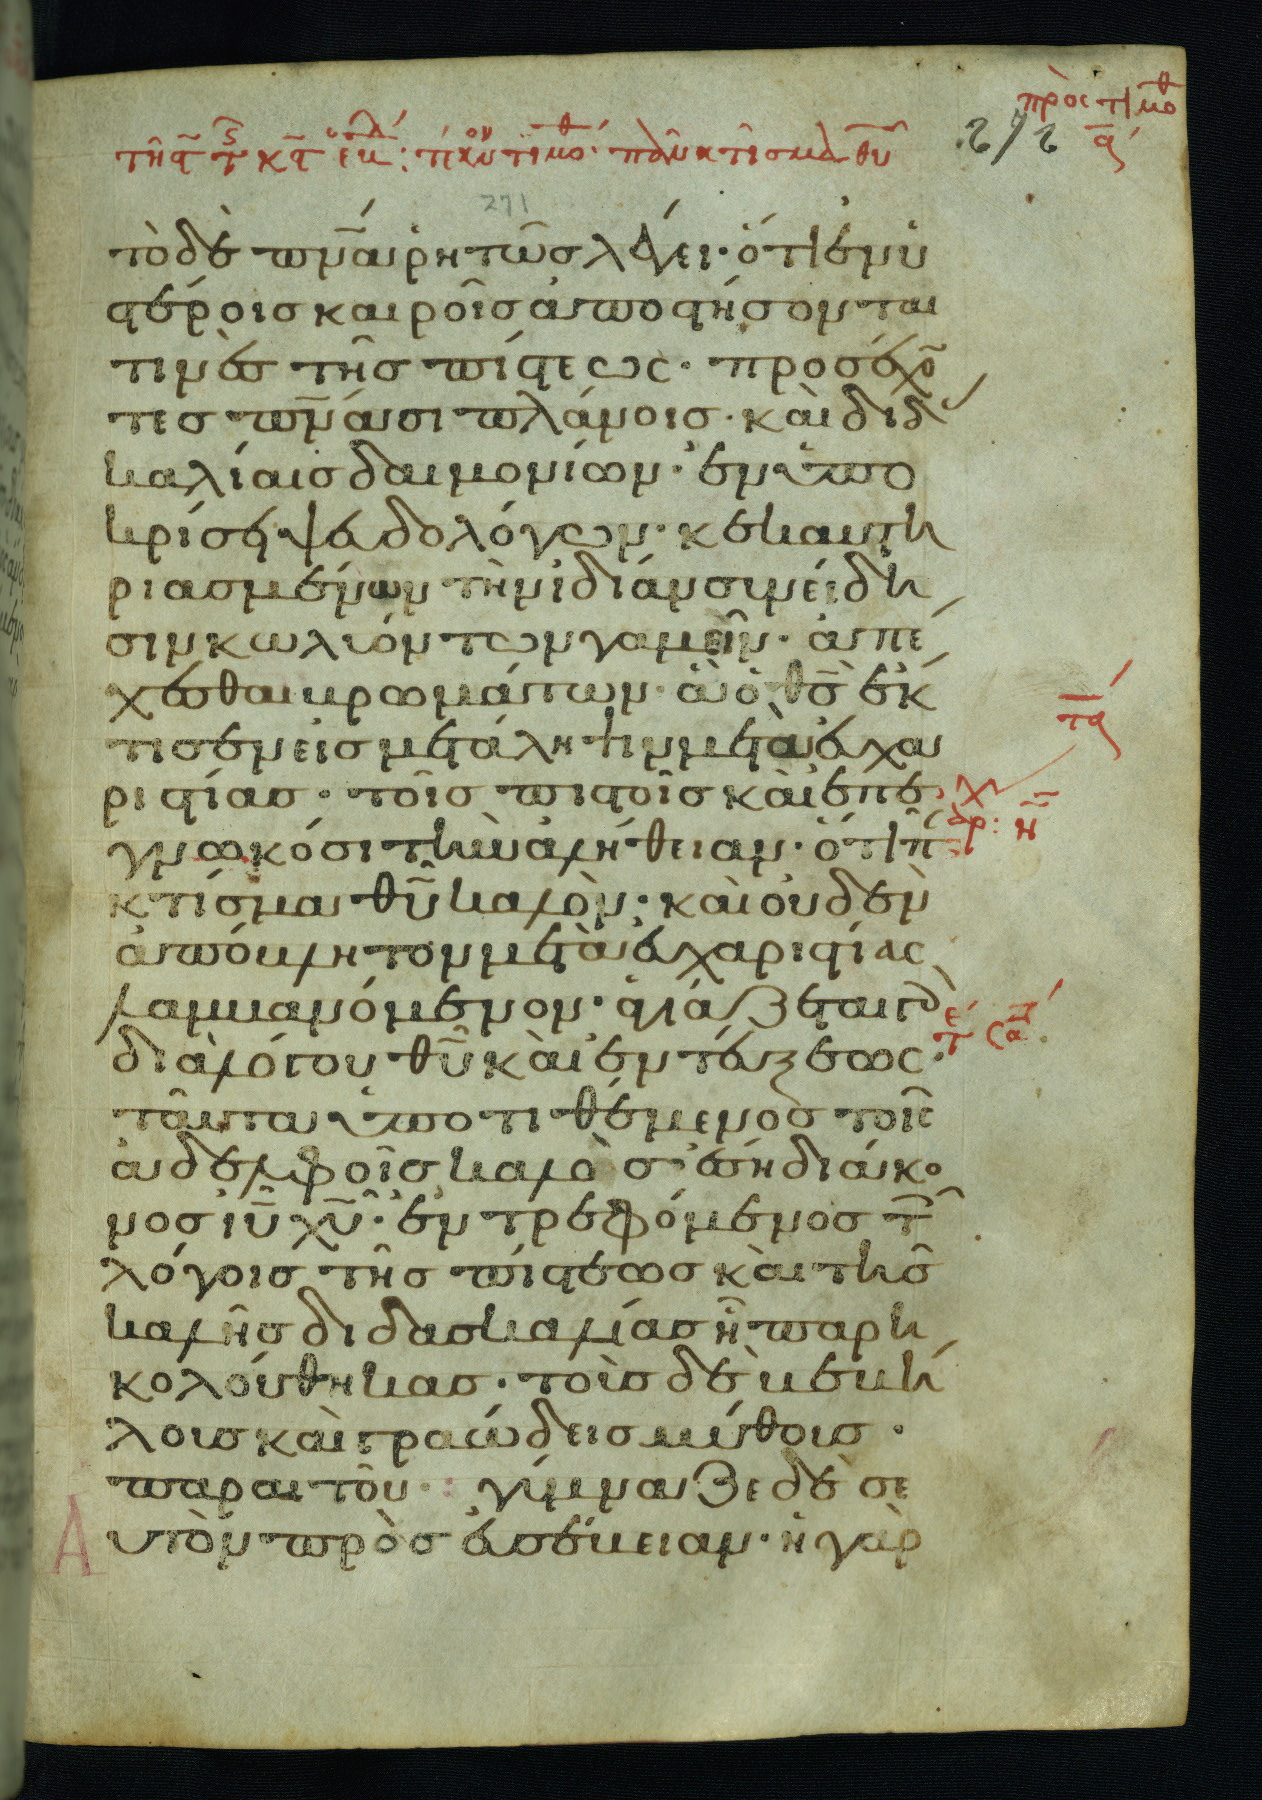 πρὸς τιμοθ
α
271
τὸ δὲ πνᾶ ῥητῶς λέγει· ὅτι ἐν ὑ
στέροις καιροῖς ἀποστήσονται
τινὲς τῆς πίστεως· προσέχο̃
τες πνᾶσι πλάνοις· καὶ διδα
καλίαις δαιμονίων· ἐν ὑπο
κρίσει ψευδολόγων· κεκαυτη
ριασμένων τὴν ἰδίαν συνείδη
σιν κωλυόντων γαμεῖν· ἀπέ
χεσθαι βρωμάτων· ἃ ὁ θς̄ ἔκ
τισεν εἰς μετάληψιν μετὰ εὐχα
ριστίας· τοῖς πιστοῖς καὶ ἐπε
γνωκόσι τὴν ἀλήθειαν· ὅτι π
κτίσμα θῡ καλὸν· καὶ οὐδὲν
ἀπόβλητον μετὰ εὐχαριστίας
λαμβανόμενον· ἁγιάζεται γὰρ
διὰ λόγου θῡ καὶ ἐντεύξεως·
ταῦτα ὑποτιθέμενος τοῖς
ἀδελφοῖς καλὸς ἔση διάκο
νος ιῡ χῡ· ἐντρεφόμενος τ
λόγοις τῆς πίστεως καὶ τῆς
καλῆς διδασκαλίας ἧ παρη
κολούθηκας· τοὺς δὲ βεβή
λους καὶ γραώδεις μύθους·
παραιτοῦ· γύμναζε δὲ σε
αυτὸν πρὸς εὐσέβειαν· ἡ γὰρ